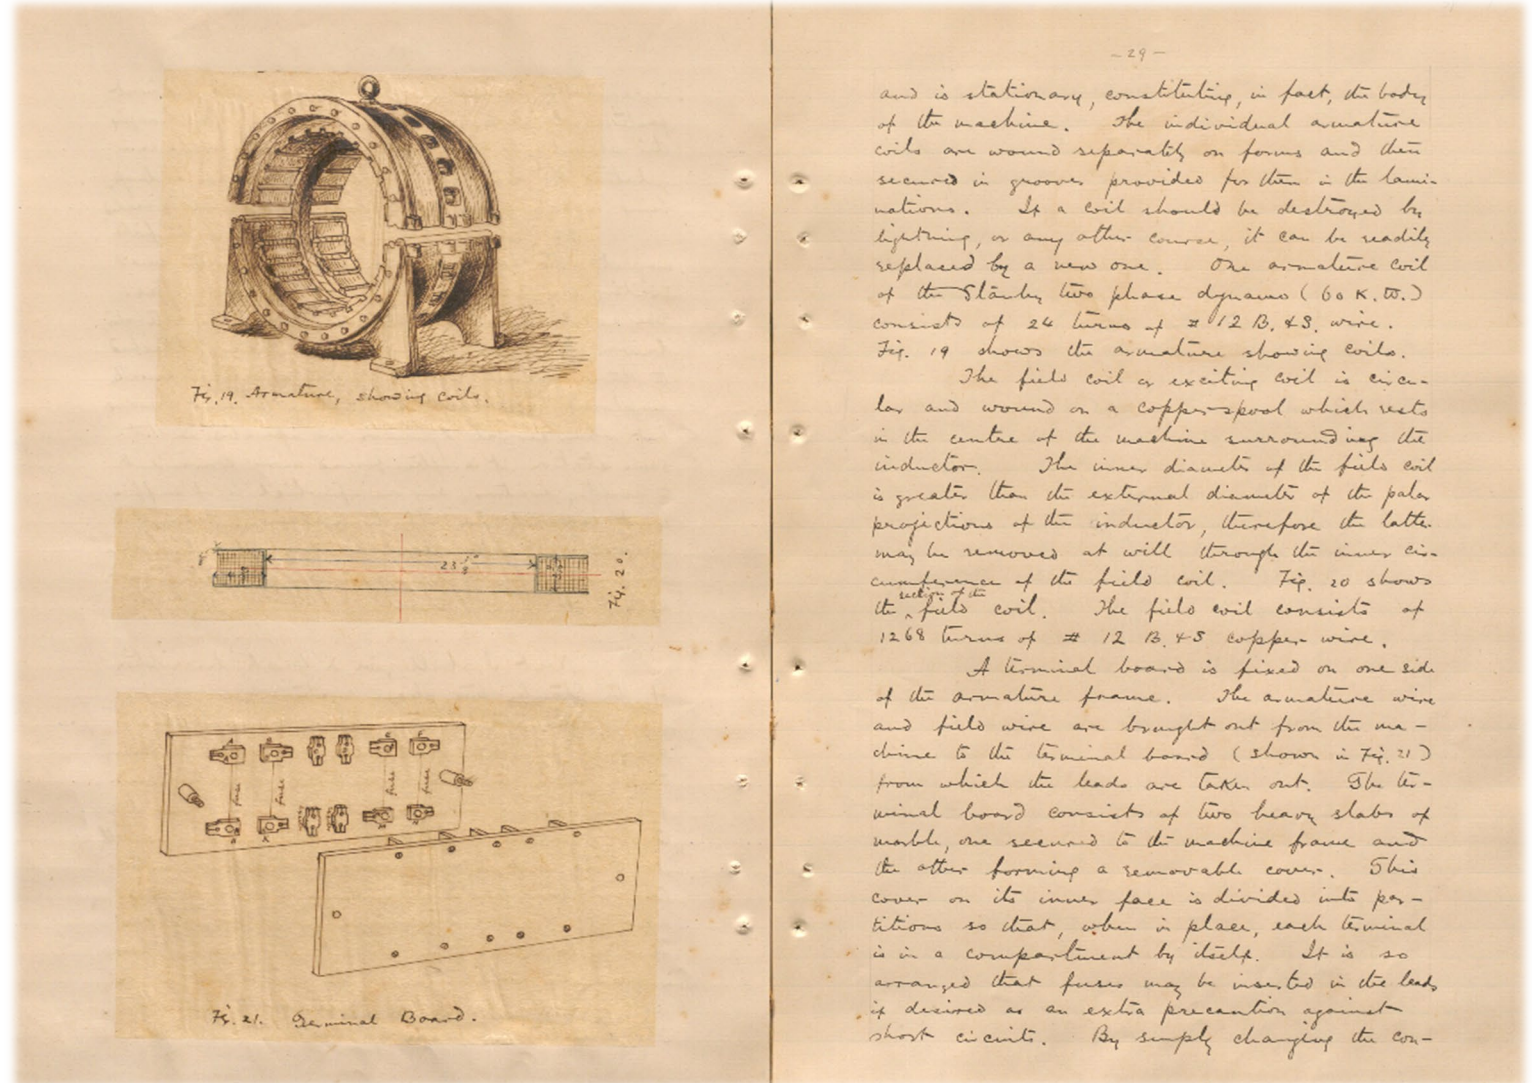 Fig. 19. Armature, showing Coils.
23 5/8"
Fig. 20.
fuse
fuse
fuse
fuse
Fig. 21. Terminal Board.
- 29 -
and is stationary, constituting, in fact, the body
of the machine. The individual armature
coils are wound separately on forms and then
secured in grooves provided for them in the lami-
nations. If a coil should be destroyed by
lightning, or any other course, it can be readily
replaced by a new one. One armature coil
of the Stanley two phase dynamo (60 K.W.)
consists of 24 turns of # 12 B. &S. wire.
Fig. 19 shows the armature showing coils.
The field coil or exciting coil is circu-
lar and wound on a copper-spool which rests
in the centre of the machine surrounding the
inductor. The inner diameter of the field coil
is greater than the external diameter of the polar
projections of the inductor, therefore the latter
may be removed at will through the inner cir-
cumference of the field coil. Fig. 20 shows
the section of the field coil. The field coil consists of
1268 turns of # 12 B. &S copper wire.
A terminal board is fixed on one side
of the armature frame. The armature wire
and field wire are brought out from the ma-
chine to the terminal board (shown in Fig. 21)
from which the leads are taken out. The ter-
minal board consists of two heavy slabs of
marble, one secured to the machine frame and
the other forming a removable cover. This
cover on its inner face is divided into par-
titions so that, when in place, each terminal
is in a compartment by itself. It is so
arranged that fuses may be inserted in the leads
if desired as an extra precaution against
short circuits. By simply changing the con-